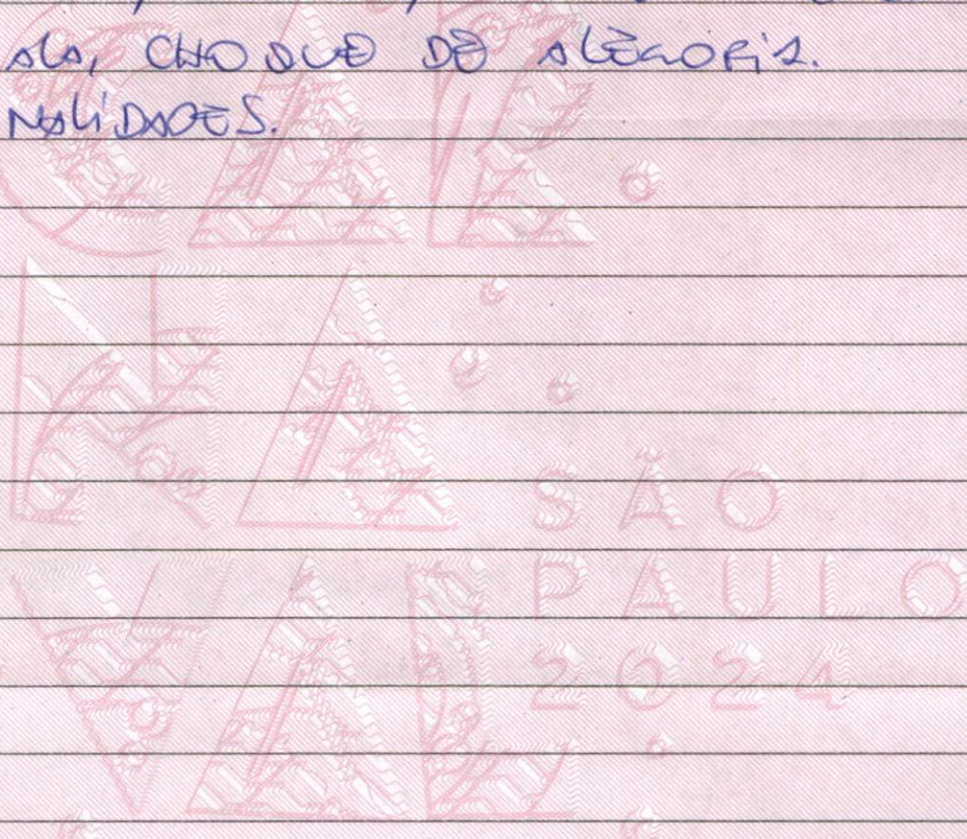 ALA, CHOQUE DE ALEGORIA.
NALIDADES.
CAR
NA
SÃO
VAL
PAULO
2024